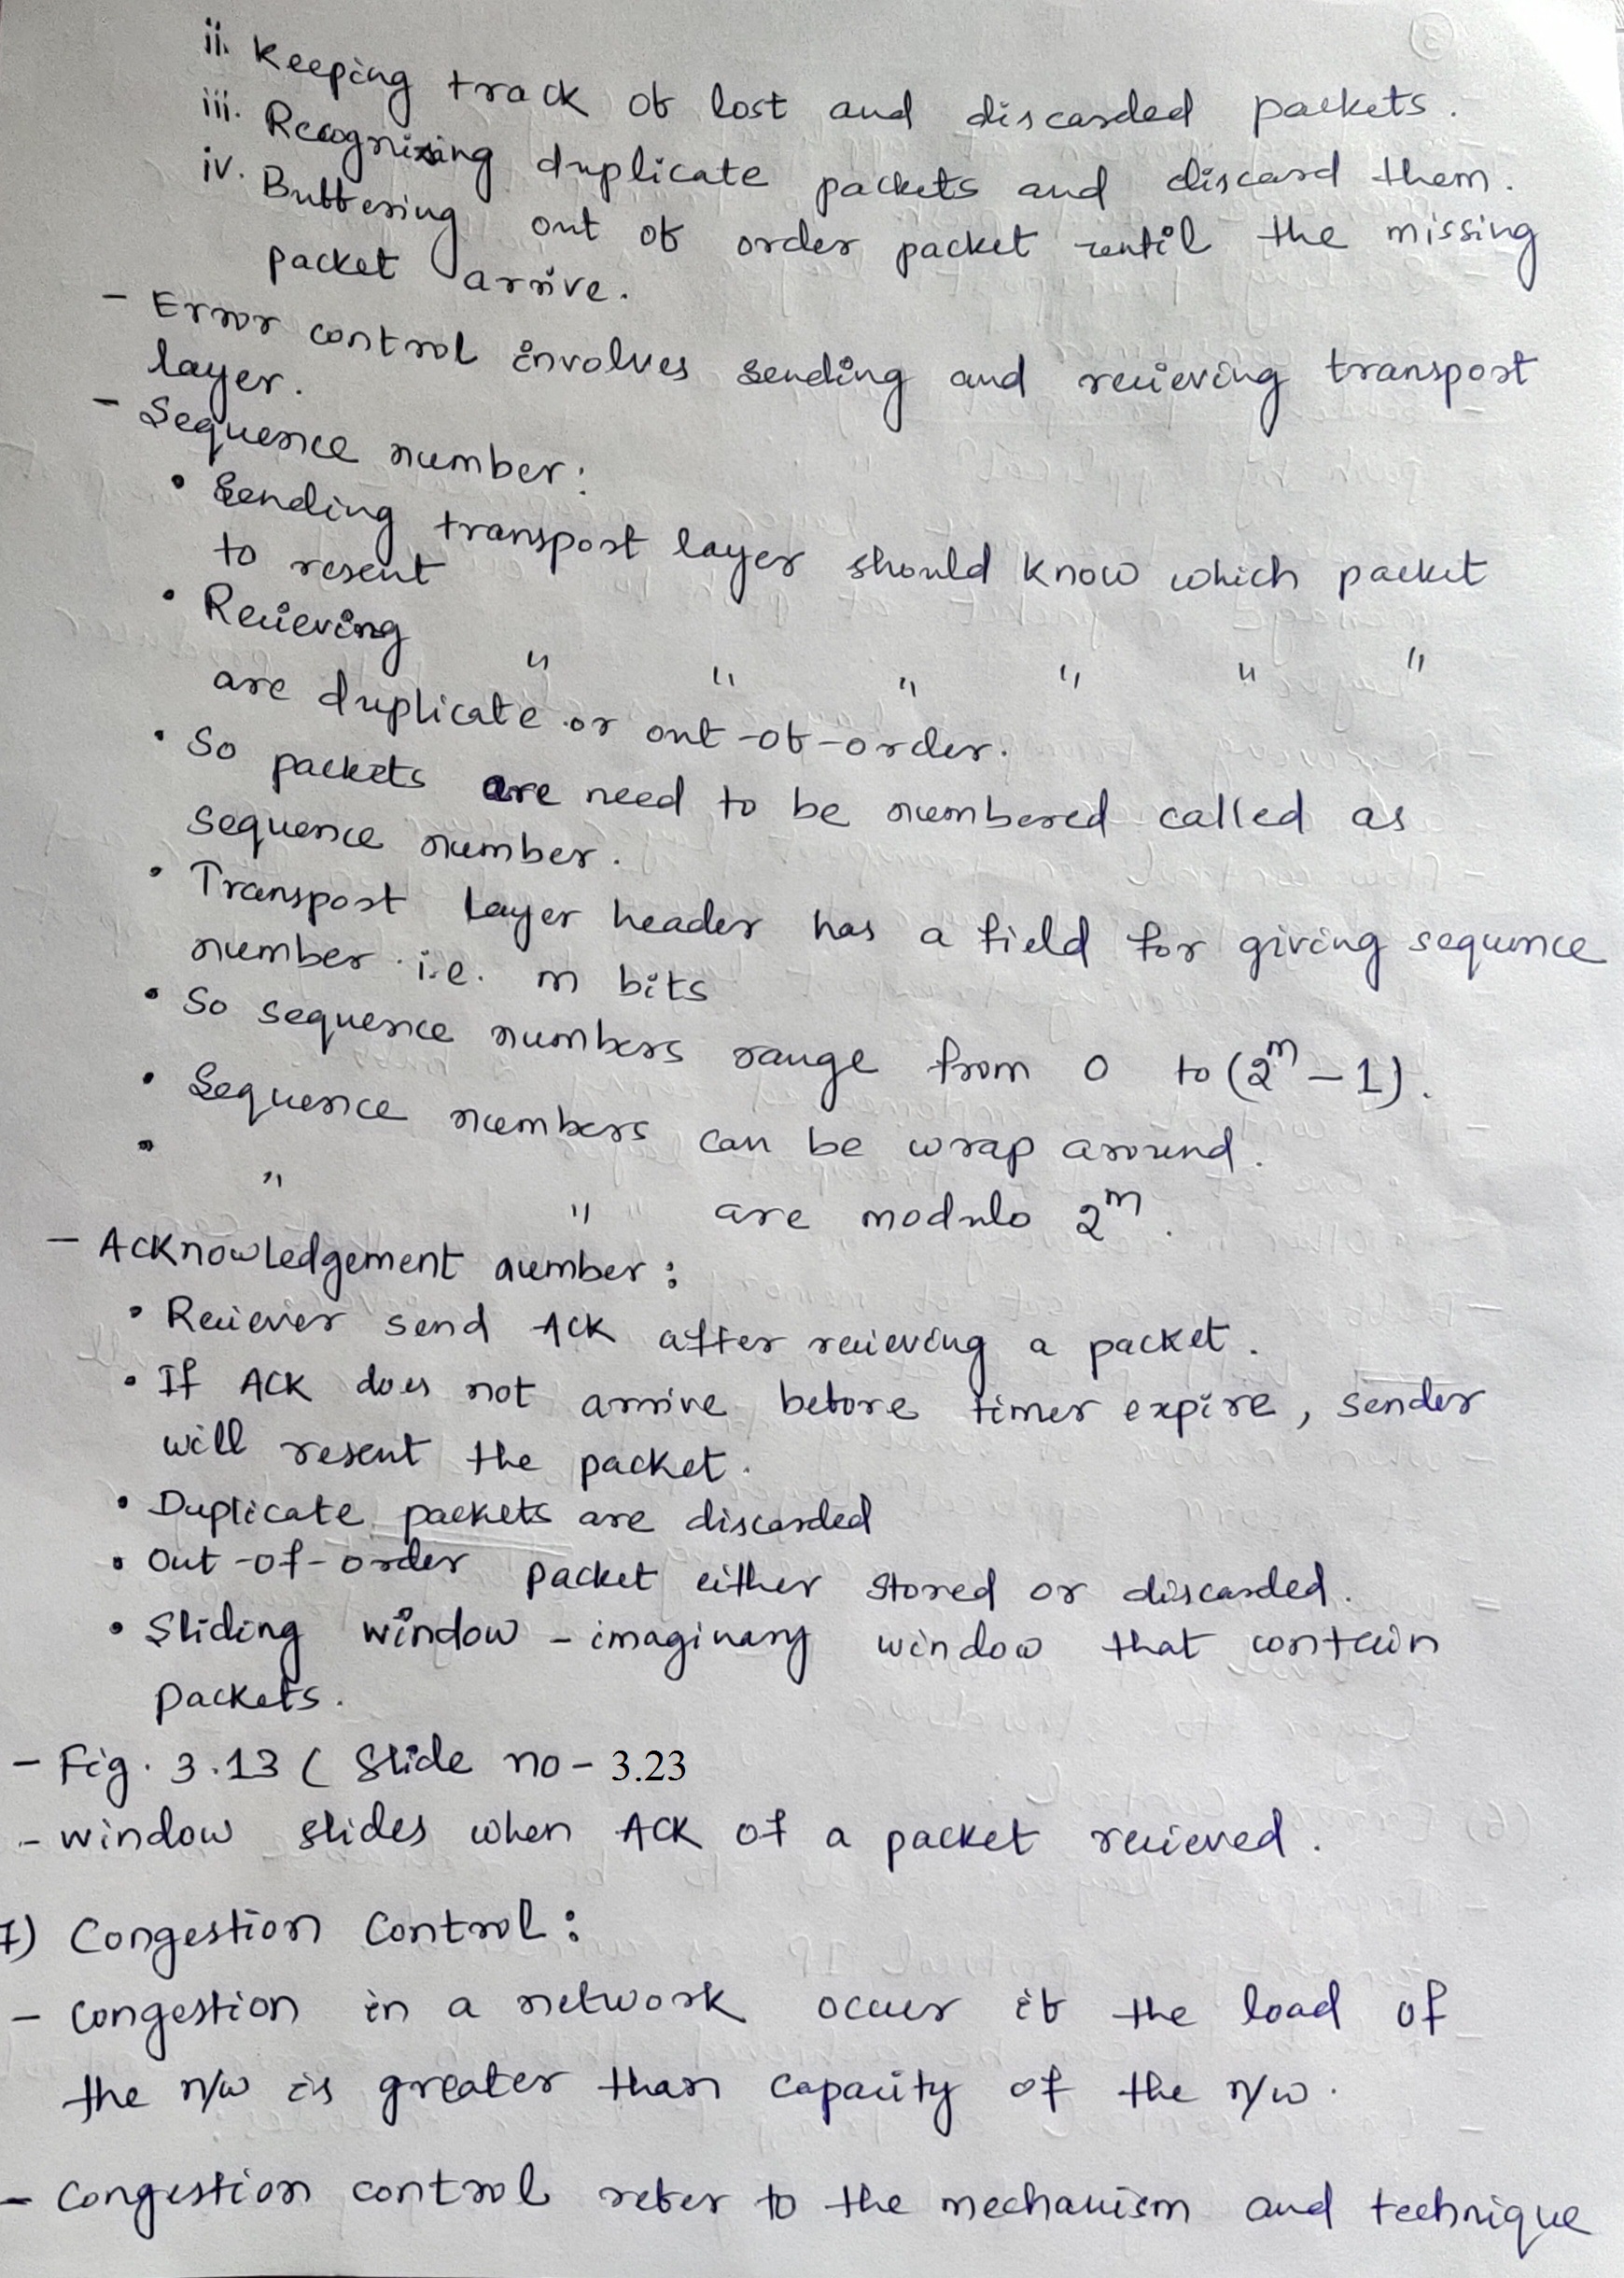 3
ii. Keeping track of lost and discarded packets.
iii. Recognizing duplicate packets and discard them.
iv. Buffering out of order packet until the missing
packet arrive.
- Error control involves sending and recieving transport
layer.
- Sequence number:
• Sending transport layer should know which packet
to resent
• Recieving " " " " " "
are duplicate or out-of-order.
• So packets are need to be numbered called as
sequence number.
• Transport layer header has a field for giving sequence
number i.e. m bits
• So sequence numbers range from 0 to (2^m - 1).
• Sequence numbers can be wrap around.
• " " are modulo 2^m.
- Acknowledgement number:
• Reciever send ACK after recieving a packet.
• If ACK does not arrive before timer expire, sender
will resent the packet.
• Duplicate packets are discarded
• Out-of-order packet either stored or discarded.
• Sliding window - imaginary window that contain
packets.
- Fig. 3.13 ( Slide no - 3.23
- window slides when ACK of a packet recieved.
7) Congestion Control:
- Congestion in a network occur if the load of
the n/w is greater than capacity of the n/w.
- Congestion control refer to the mechanism and technique